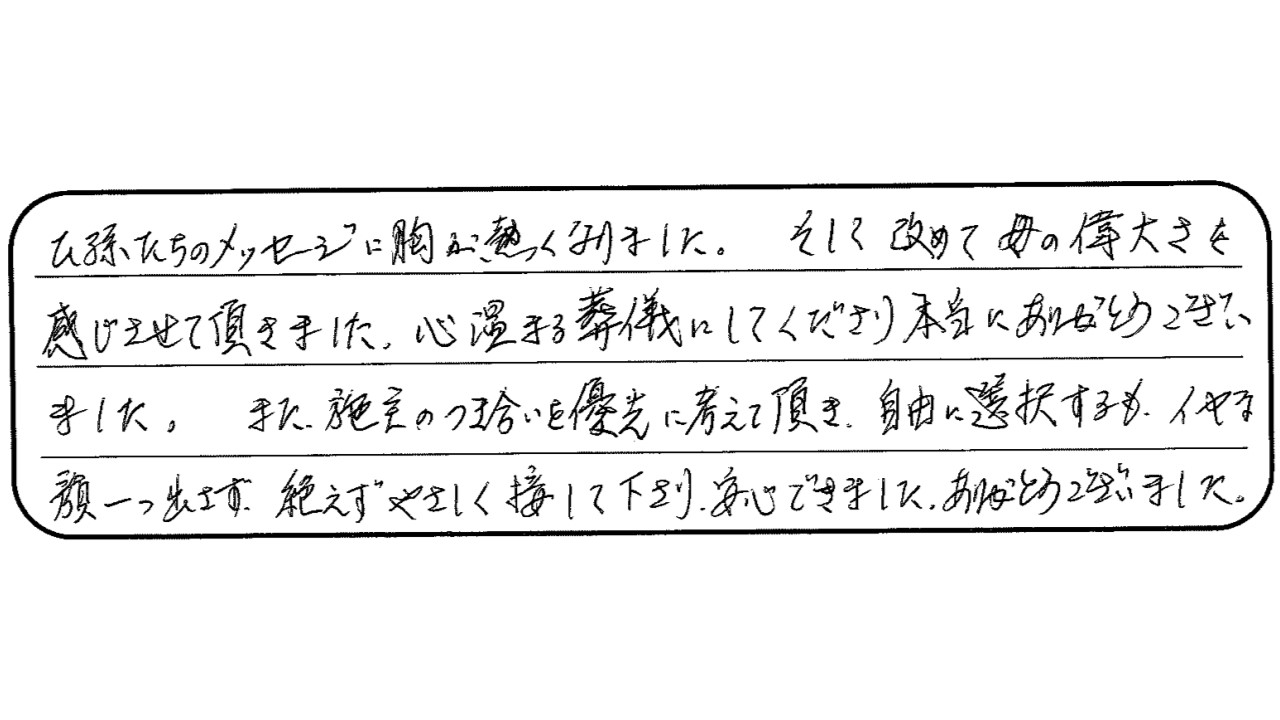 ひ孫たちのメッセージに胸が熱くなりました。 そして改めて母の偉大さを
感じさせて頂きました。心温まる葬儀にしてくださり本当にありがとうござい
ました。 また、施主のつき合いを優先に考えて頂き、自由に選択するも、イヤな
顔一つ出さず、絶えずやさしく接して下さり、安心できました。ありがとうございました。